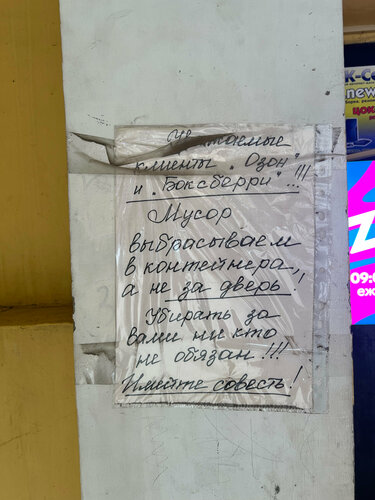 Уважаемые
клиенты „Озон"
и „Боксберри"...!!!
Мусор
выбрасываем
в контейнера,
а не за дверь!
Убирать за
вами ни кто
не обязан!!!
Имейте совесть!
new
09:0
еж